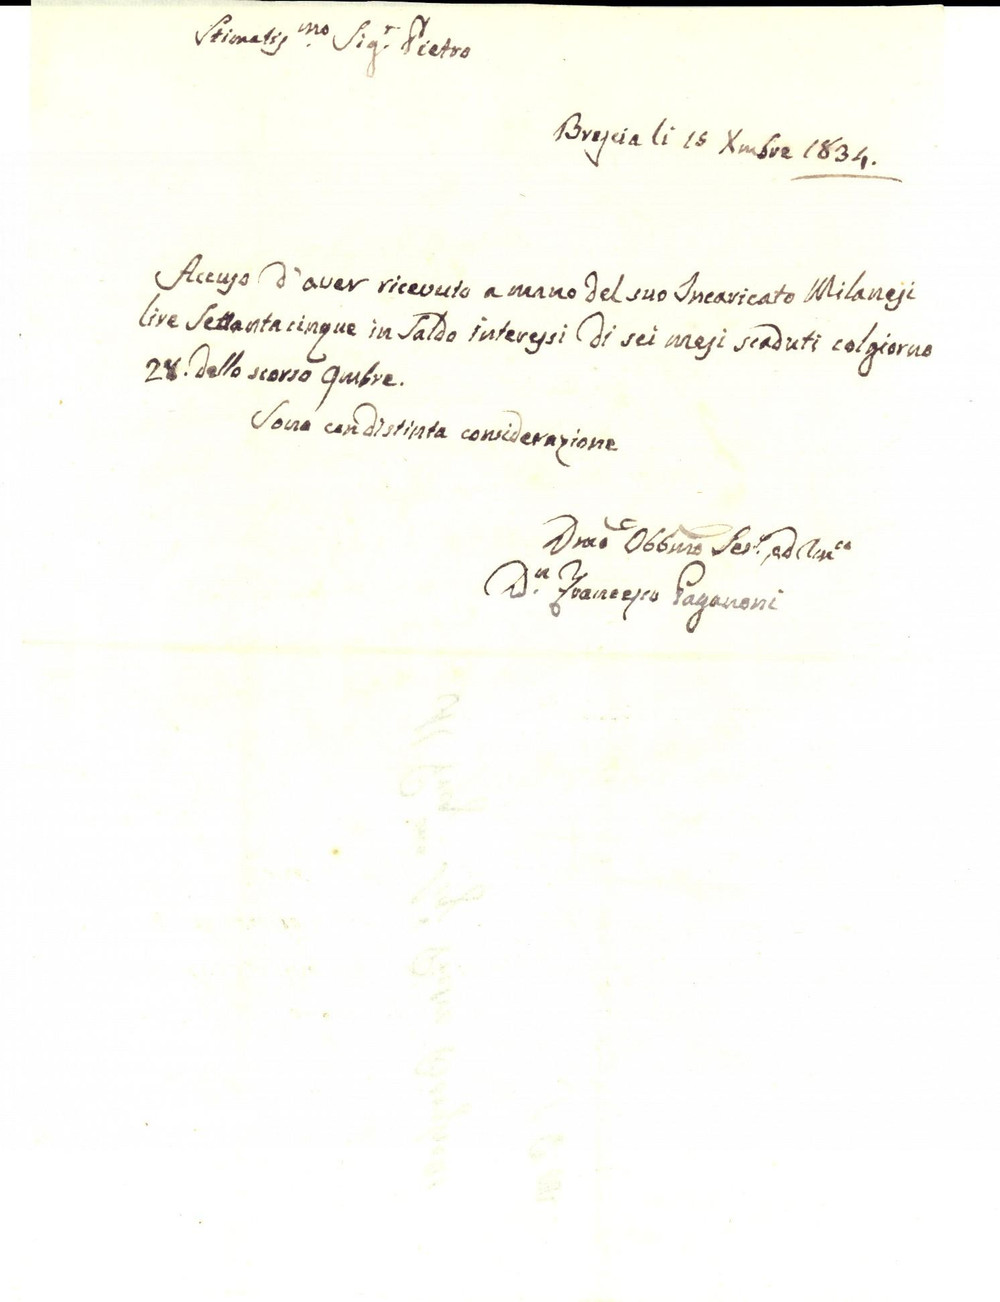 Stimatissmo Sigr. Pietro
Brescia li 15 Xmbre 1834.
Accuso d'aver ricevuto a mano del suo Incaricato Milanesi
lire Settantacinque in Saldo interessi di sei mesi scaduti col giorno
28. dello scorso 9mbre.
Sono con distinta considerazione
Obbmo Ser. ed
Dn. Francesco Paganoni